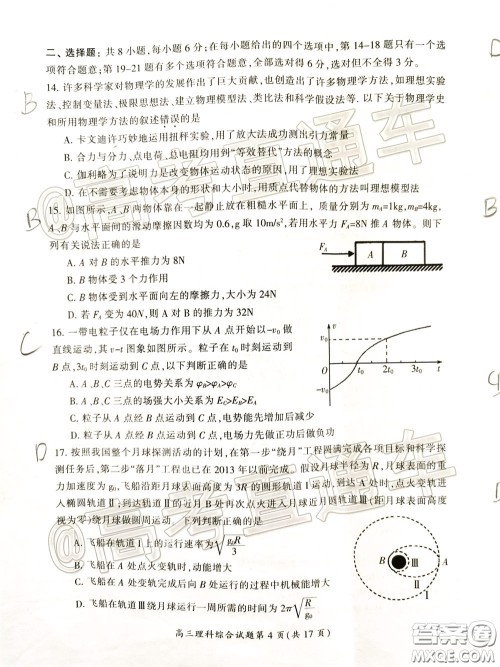 二、选择题：共8小题，每小题6分；在每小题给出的四个选项中，第14-18题只有一个选
项符合题意；第19-21题有多个选项符合题意，全部选对得6分，选对但不全得3分。
B
14. 许多科学家对物理学的发展作出了巨大贡献，也创造出了许多物理学方法，如理想实验
法、控制变量法、极限思想法、建立物理模型法、类比法和科学假设法等. 以下关于物理学史
和所用物理学方法的叙述错误的是
A. 卡文迪许巧妙地运用扭秤实验，用了放大法成功测出引力常量
B. 合力与分力、点电荷、总电阻均用到“等效替代”方法的概念
C. 伽利略为了说明力是改变物体运动状态的原因用了理想实验法
D. 在不需要考虑物体本身的形状和大小时，用质点代替物体的方法叫理想模型法
B
15. 如图所示，A、B两物体靠在一起静止放在粗糙水平面上，质量分别为mA=1kg，mB=4kg，
A、B与水平间的滑动摩擦因均为0.6，g取10m/s²，若用水平力FA=8N推A物体。则下
列有关说法正确的是
A. A对B的水平推力为8N
B. B物体受3个力作用
C. B物体受到水平面向左的摩擦力，大小为24N
D. 若FA变为40N，则A、B受力平衡
FA
A
B
C
16. 一带电粒子仅在电场力作用下从A点开始以-v₀做
直线运动，其v-t图象如图所示。粒子在t₀时刻运动到
B点，3t₀时刻运动到C点，以下判断正确的是
A. A、B、C三点的电势关系为φB>φA>φC
B. A、B、C三点的场强大小关系为EC>EB>EA
C. 粒子从A点经B点运动到C点，电势能先增加后减少
D. 粒子从A点经B点运动到C点，电场力先做正功后做负功
v
v₀
O
t₀
2t₀
3t₀
t
-v₀
D
17. 按照我国整个月球探测活动的计划，在第一步“绕月”工程圆满完成各项目标和科学探
测任务后，第二步“落月”工程也已在2013年以前完成。假设月球半径为R，月球表面的重
力加速度为g₀，飞船沿距月球表面高度为3R的圆形轨道Ⅰ运动，到达A点时，点火变轨进
入椭圆轨道Ⅱ，到达轨道Ⅱ的近月点B处再次点火进入月球近月轨道Ⅲ(距月球表面高度
视为零)绕月球做圆周运动. 下列判断正确的是
A. 飞船在轨道Ⅰ上的运行速率为√(g₀R/3)
B. 飞船在A处点火变轨时，动能增大
C. 飞船从A处运行到B处的过程中机械能增大
D. 飞船在轨道Ⅲ绕月球运行一周所需的时间为2π√(R/g₀)
B
Ⅲ
A
Ⅱ
Ⅰ
高三理科综合试题第 4 页(共 17 页)
@高考直通车
@高考直通车
答案圈